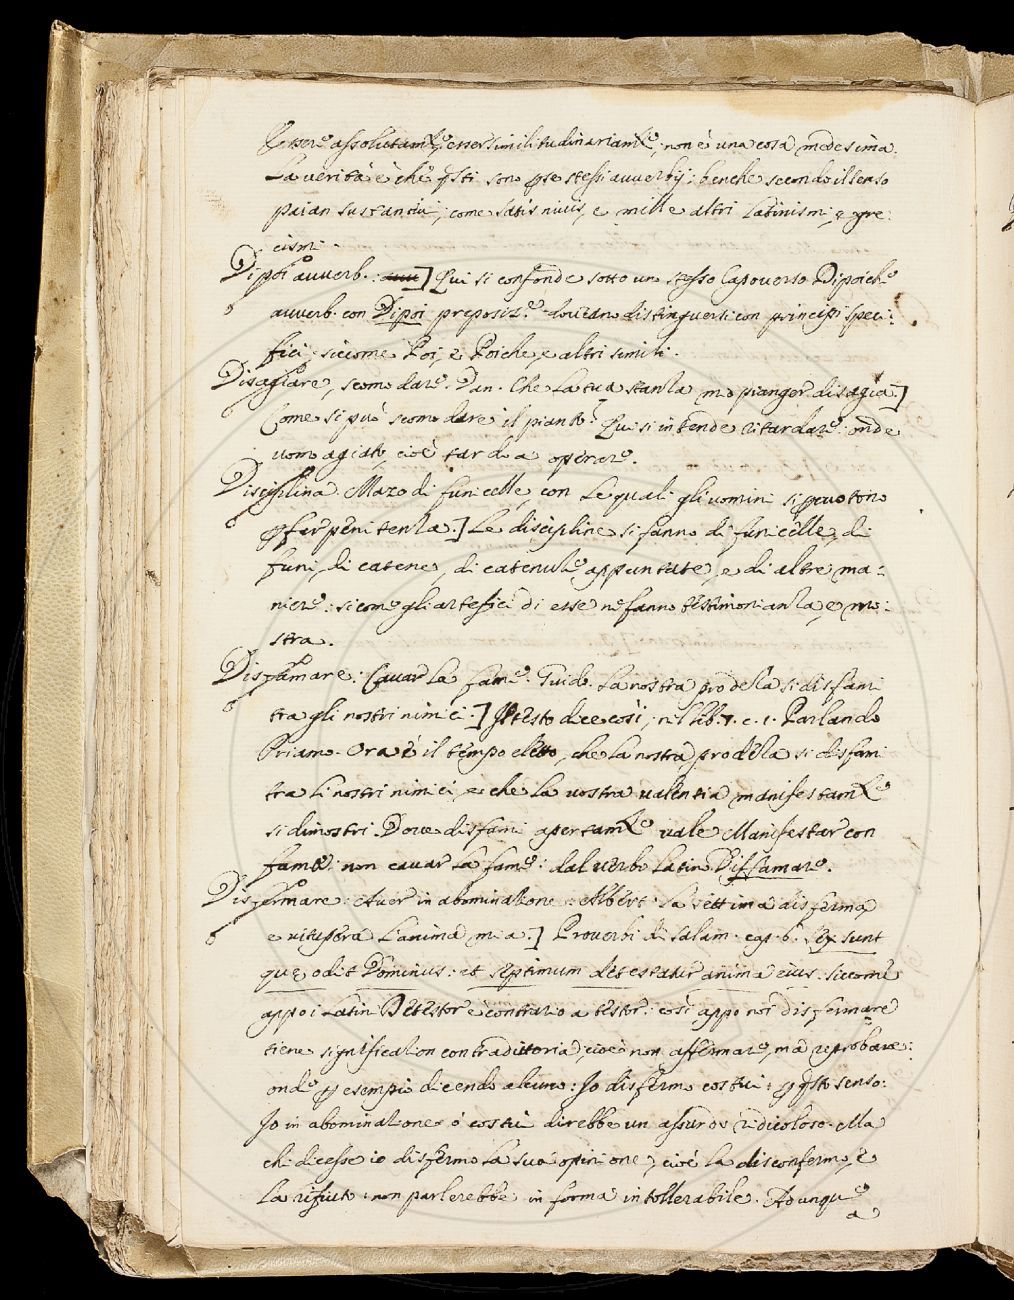 Essere assolutam.te, esser similitudinariam.te, non è una cosa medesima.
La verità è che q.sti sono p se stessi avverbij: benche secondo il senso
paian sustantivi, come satis nivis, e mille altri Latinismi, e gre:
cismi.
Dipoi avverb.:] Qui si confonde sotto uno stesso Capoverso Dipoich.e
avverb. con Dipoi preposiz.e doveano distinguersi con principi speci:
fici, siccome Poi, e Poiche, e altri simili.
Disagiare, scomodare. Dan. Che la tua stanza mio pianger disagia.]
Come si può scomodare il pianto? Qui s'intende ritardare: onde
uomo agiato, cioè tardo a operare.
Disciplina. Mazo di funicelle, con le quali gli uomini si pcuotono
p far penitenza.] Le discipline si fanno di funicelle, di
funi, di catene, di catenule appuntate, e di altre ma:
niere: sicome gli artefici di esse ne fanno testimonianza, e mo:
stra.
Disfamare. Cavar la fame. Guid. La nostra prodeza si disfami
tra gli nostri nimici.] Il testo dice così, nel lib. 7. c. 1. Parlando
Priamo. Ora è il tempo eletto, che la nostra prodeza si disfami
tra li nostri nimici, e che la vostra valentia manifestam.te
si dimostri. Dove disfami apertam.te vale Manifestar con
fama: non cavar la fame: dal verbo latino Diffamare.
Disfermare. Aver in abominazione. Albert. La settima disferma,
e vitupera l'anima mia.] Proverbi di Salam. cap. 6. Sex sunt
que odit Dominus: et septimum detestatur anima eius. siccome
appo i Latini Detestor è contrario a testor: così appo noi disfermare
tiene significazion contradittoria, cioè non affermare, ma reprobare:
onde p esempio dicendo alcuno: Io disfermo costui: p q.sto senso:
Io in abominazione ò costui direbbe un assurdo ridicoloso. Ma
chi dicesse io disfermo la sua opinione, cioè la disconfermo, e
la rifiuto, non parlerebbe in forma intollerabile. Adunque
a